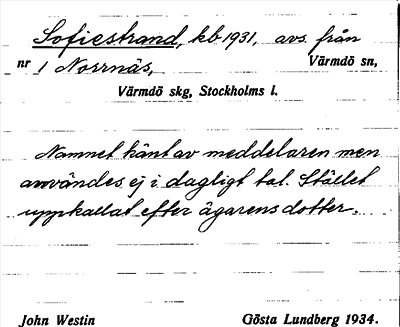 Sofiestrand, kb 1931, avs. från
nr 1 Norrnäs, Värmdö sn,
Värmdö skg, Stockholms l.
Namnet känt av meddelaren men
användes ej i dagligt tal. Stället
uppkallat efter ägarens dotter.
John Westin Gösta Lundberg 1934.